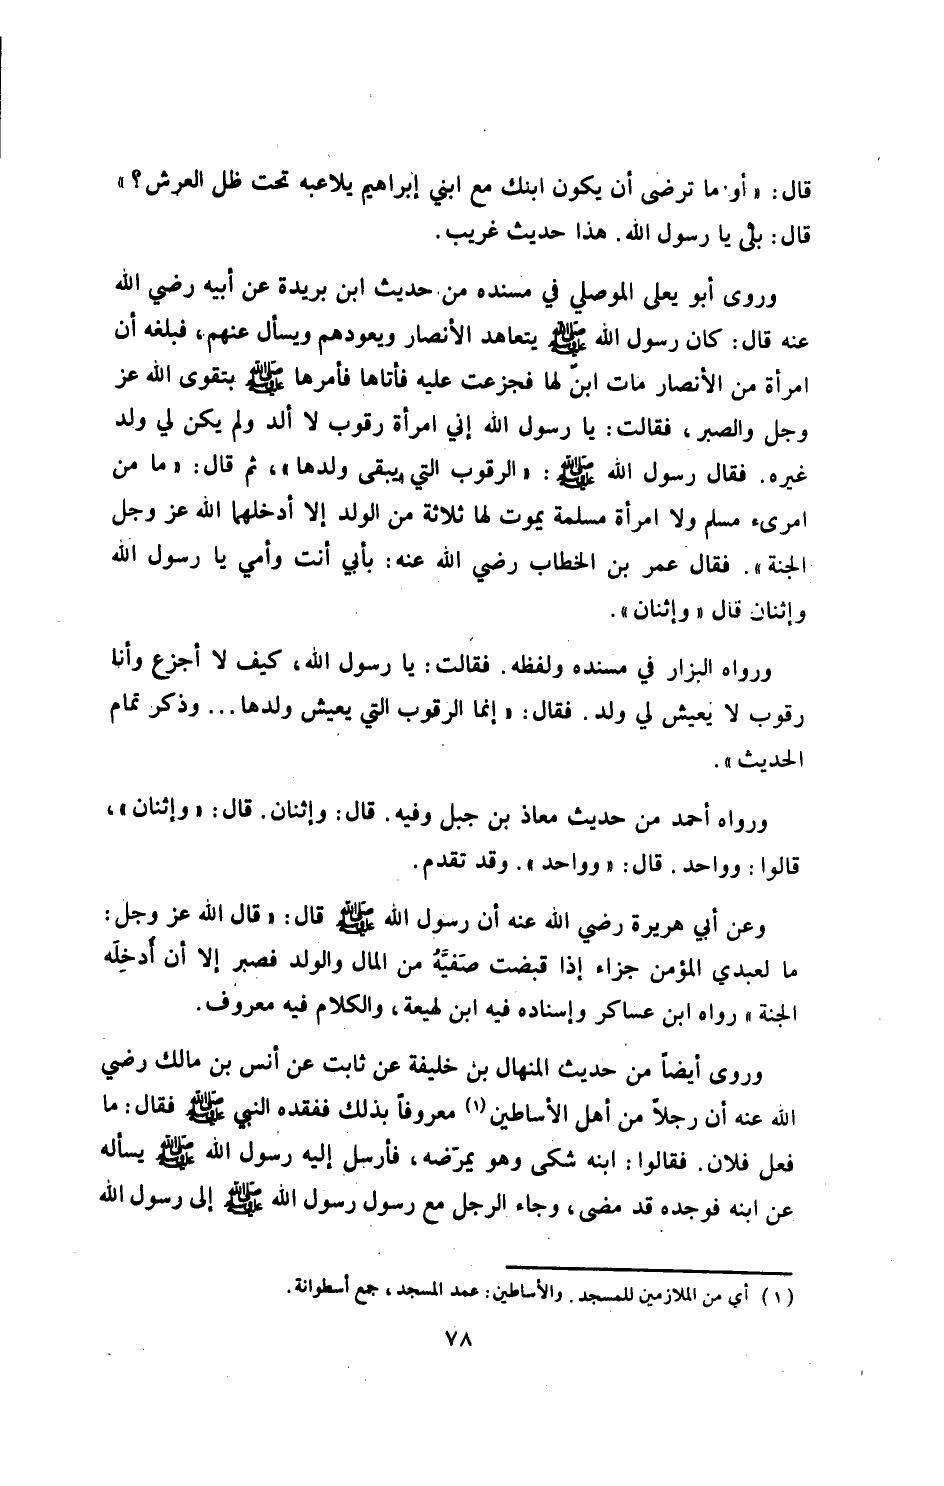 قال: « أو ما ترضى أن يكون ابنك مع ابني إبراهيم يلاعبه تحت ظل العرش؟ »
قال: بلى يا رسول الله. هذا حديث غريب.
وروى أبو يعلى الموصلي في مسنده من حديث ابن بريدة عن أبيه رضي الله
عنه قال: كان رسول الله ﷺ يتعاهد الأنصار ويعودهم ويسأل عنهم، فبلغه أن
امرأة من الأنصار مات ابنٌ لها فجزعت عليه فأتاها فأمرها ﷺ بتقوى الله عز
وجل والصبر، فقالت: يا رسول الله إني امرأة رقوب لا ألد ولم يكن لي ولد
غيره. فقال رسول الله ﷺ: « الرقوب التي يبقى ولدها »، ثم قال: « ما من
امرىء مسلم ولا امرأة مسلمة يموت لها ثلاثة من الولد إلا أدخلهما الله عز وجل
الجنة ». فقال عمر بن الخطاب رضي الله عنه: بأبي أنت وأمي يا رسول الله
وإثنان قال « وإثنان ».
ورواه البزار في مسنده ولفظه. فقالت: يا رسول الله، كيف لا أجزع وأنا
رقوب لا يَعيش لي ولد. فقال: « إنما الرقوب التي يعيش ولدها... وذكر تمام
الحديث ».
ورواه أحمد من حديث معاذ بن جبل وفيه. قال: وإثنان. قال: « وإثنان »،
قالوا: وواحد. قال: « وواحد ». وقد تقدم.
وعن أبي هريرة رضي الله عنه أن رسول الله ﷺ قال: « قال الله عز وجل:
ما لعبدي المؤمن جزاء إذا قبضت صَفيَّهُ من المال والولد فصبر إلا أن أُدخِلَه
الجنة » رواه ابن عساكر وإسناده فيه ابن لهيعة، والكلام فيه معروف.
وروى أيضاً من حديث المنهال بن خليفة عن ثابت عن أنس بن مالك رضي
الله عنه أن رجلاً من أهل الأساطين(١) معروفاً بذلك ففقده النبي ﷺ فقال: ما
فعل فلان. فقالوا: ابنه شكى وهو يمرّضه، فأرسل إليه رسول الله ﷺ يسأله
عن ابنه فوجده قد مضى، وجاء الرجل مع رسول رسول الله ﷺ إلى رسول الله
(١) أي من الملازمين للمسجد. والأساطين: عمد المسجد، جمع أسطوانة.
٧٨